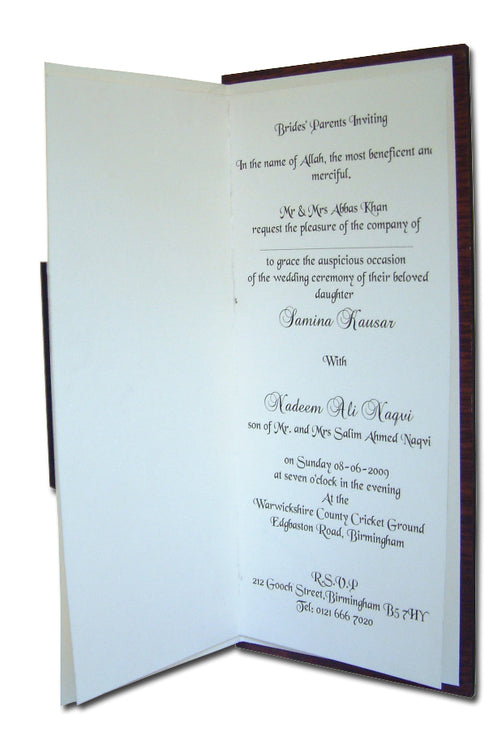 Brides' Parents Inviting
In the name of Allah, the most beneficent and
merciful.
Mr & Mrs Abbas Khan
request the pleasure of the company of
to grace the auspicious occasion
of the wedding ceremony of their beloved
daughter
Samina Kausar
With
Nadeem Ali Naqvi
son of Mr. and Mrs Salim Ahmed Naqvi
on Sunday 08-06-2009
at seven o'clock in the evening
At the
Warwickshire County Cricket Ground
Edgbaston Road, Birmingham
R.S.V.P
212 Gooch Street,Birmingham B5 7HY
Tel: 0121 666 7020